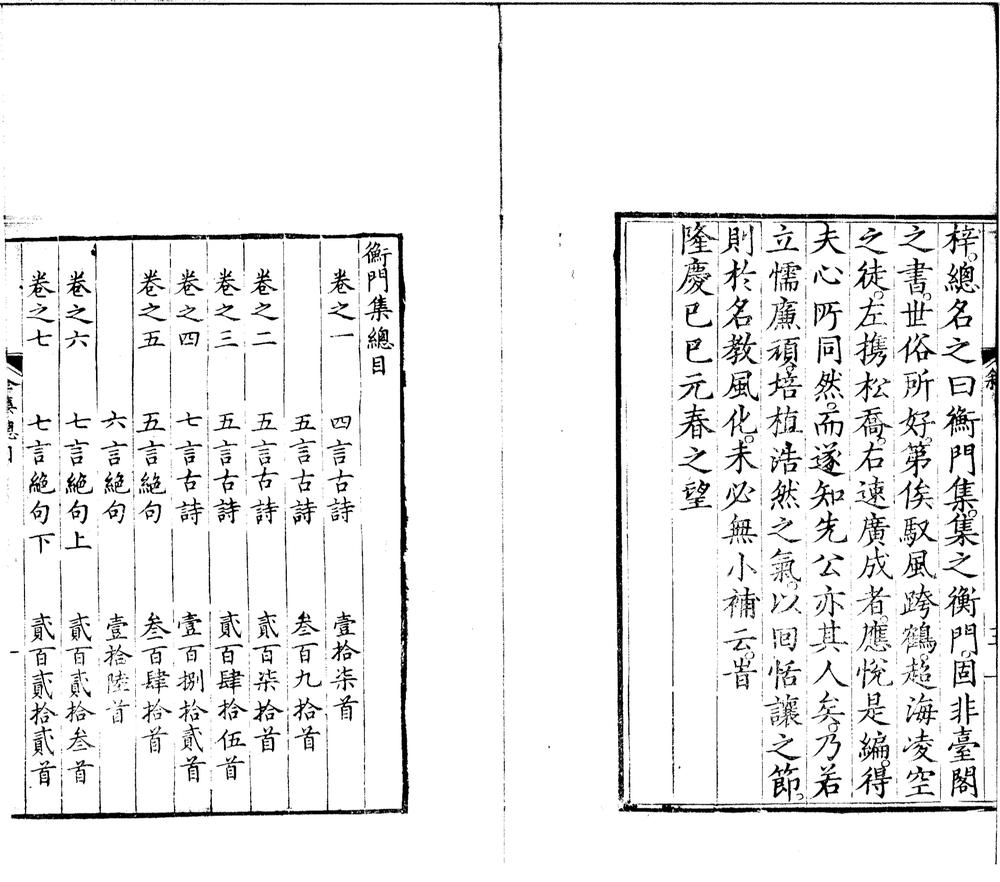 梓。總名之曰衡門集。集之衡門。固非臺閣
之書。世俗所好。第俟馭風跨鶴。超海凌空
之徒。左攜松喬。右速廣成者。應悅是編。得
夫心所同然。而遂知先公亦其人矣。乃若
立懦廉頑。培植浩然之氣。以回恬讓之節。
則於名教風化。未必無小補云。旹
隆慶己巳元春之望
衡門集總目
卷之一 四言古詩 壹拾柒首
五言古詩 叁百九拾首
卷之二 五言古詩 貳百柒拾首
卷之三 五言古詩 貳百肆拾伍首
卷之四 七言古詩 壹百捌拾貳首
卷之五 五言絕句 叁百肆拾首
六言絕句 壹拾陸首
卷之六 七言絕句上 貳百貳拾叁首
卷之七 七言絕句下 貳百貳拾貳首